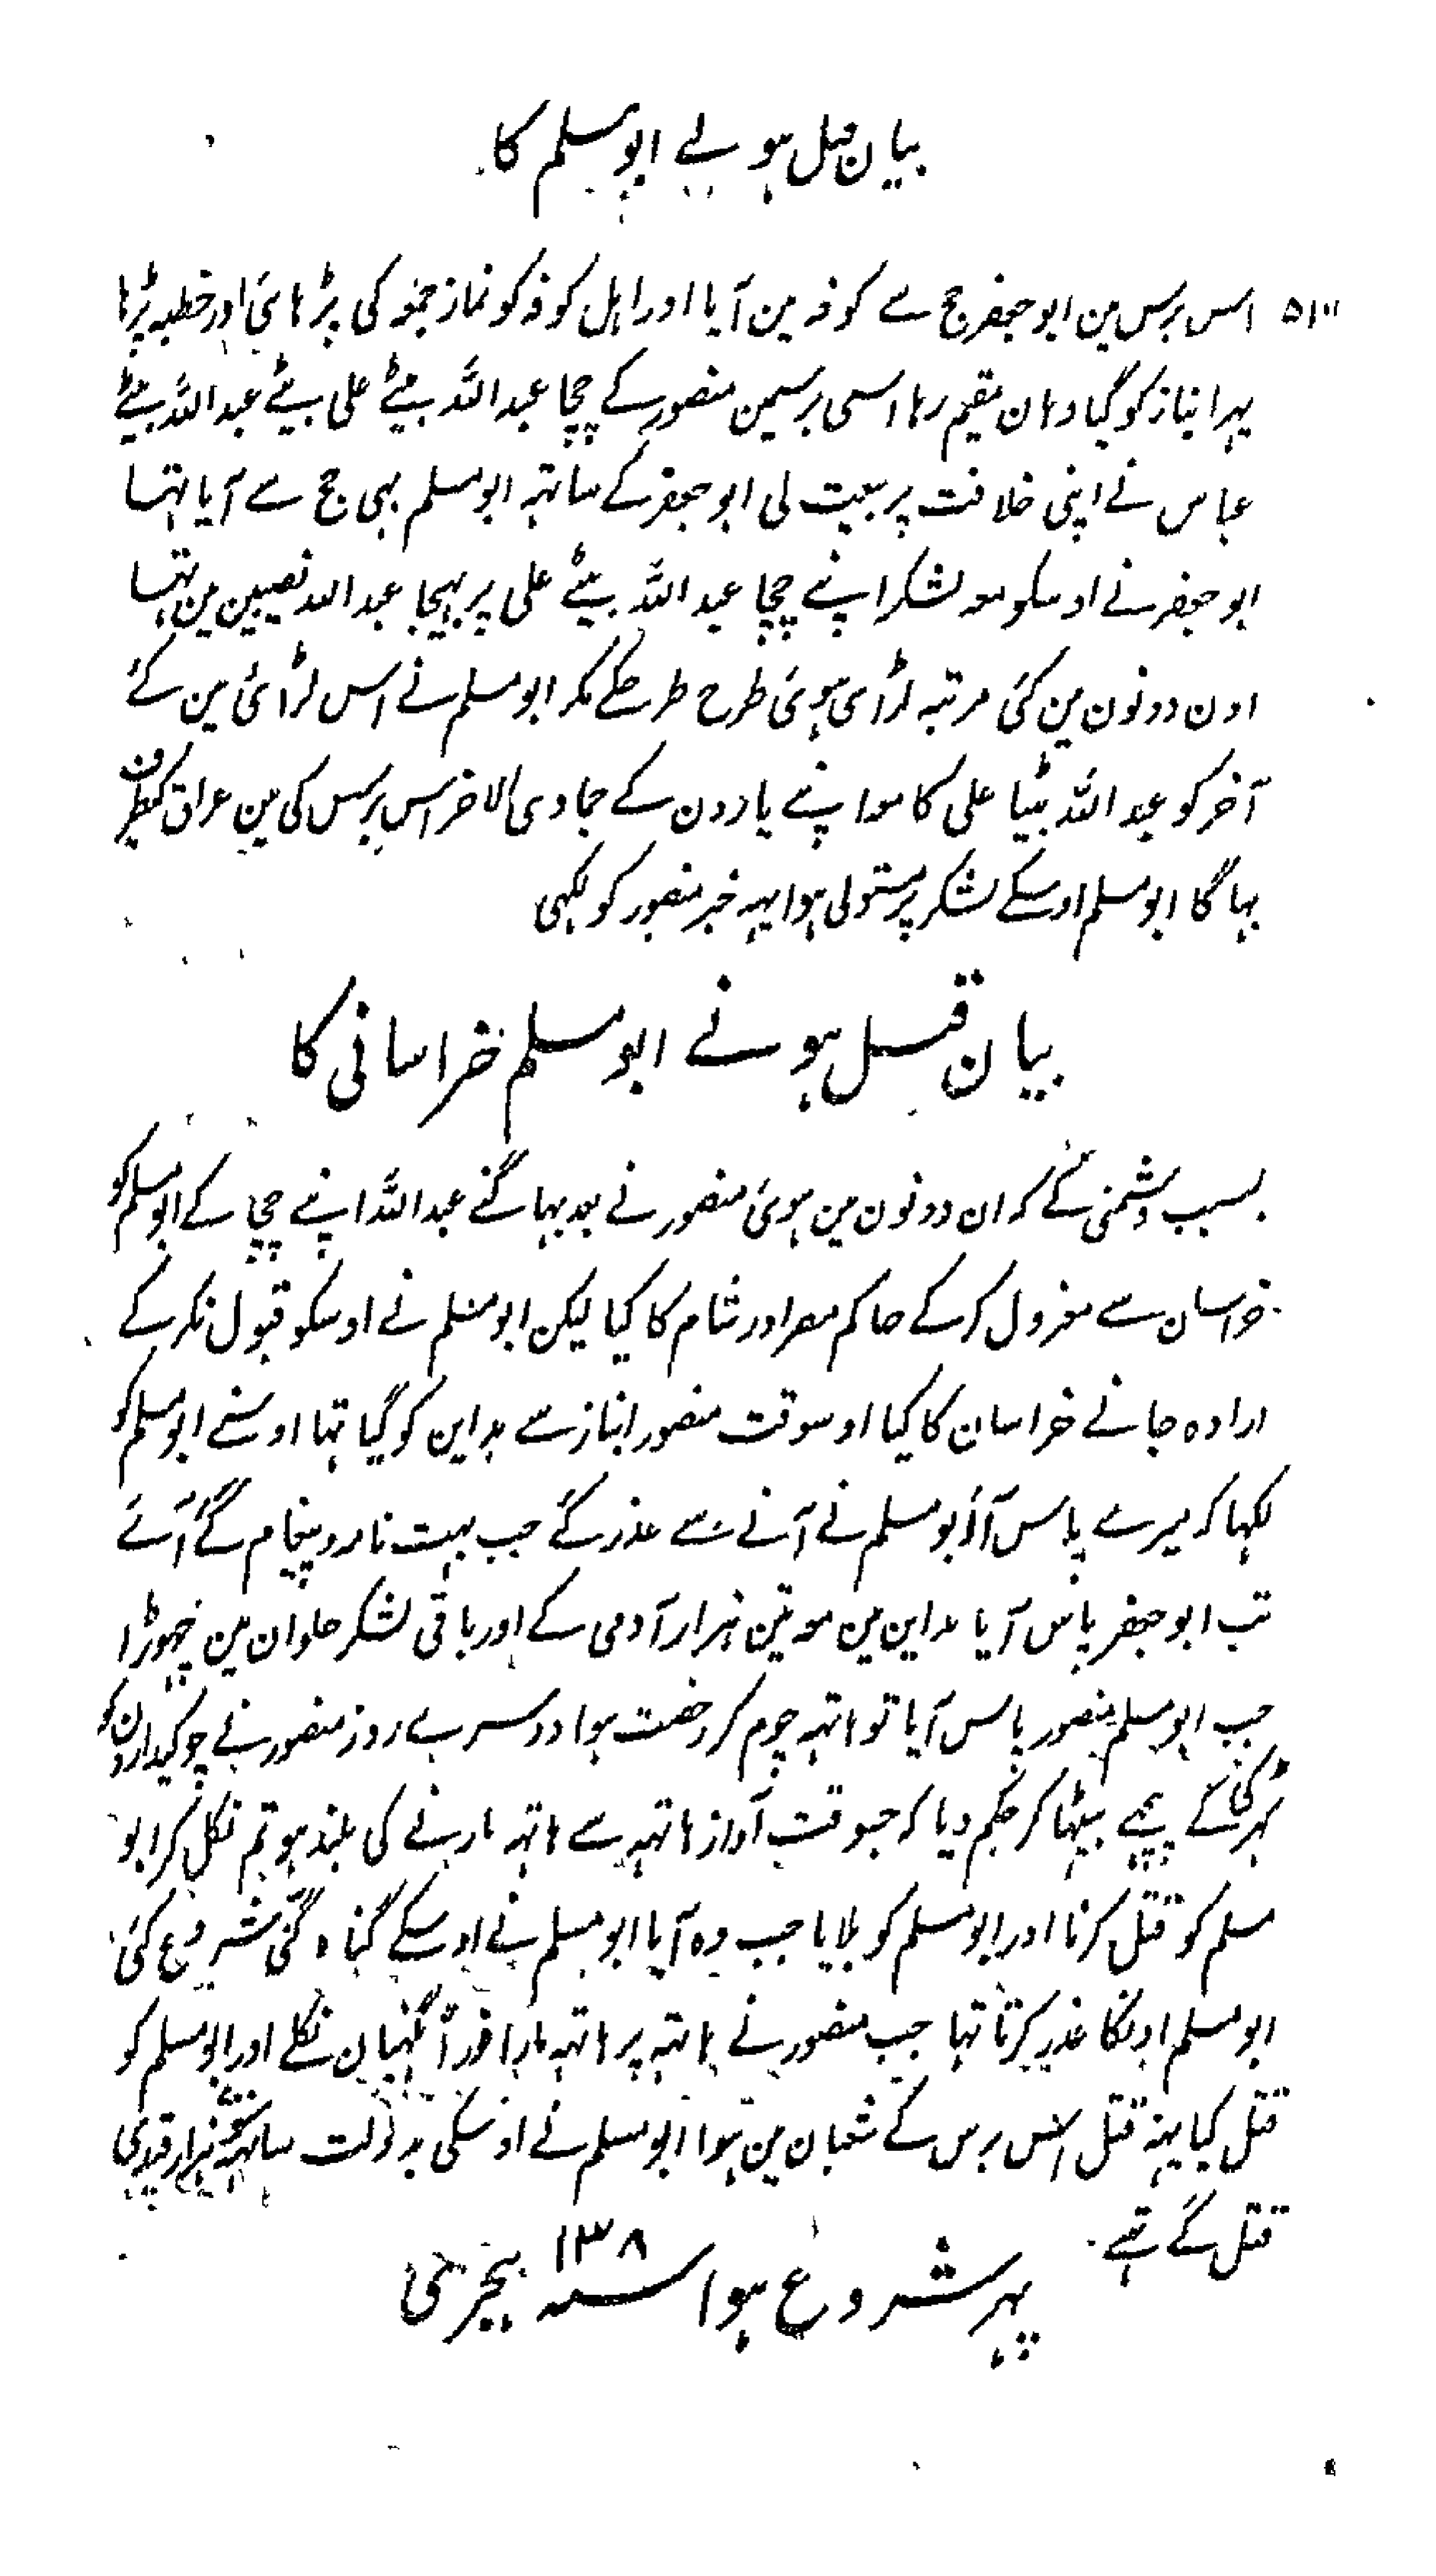 بیان قتل ہونے ابو مسلم کا
اس برس مین ابو جعفر حج سے کوفہ مین آیا اور اہل کوفہ کو نماز جمعہ کی پڑہائی اور خطبہ پڑہا
پہر انبار کو گیا وہان مقیم رہا اسی برسمین منصور کے چچا عبد اللہ بیٹے علی بیٹے عبد اللہ بیٹے
عباس نے اپنی خلافت پر بیعت لی ابو جعفر کے ساتہہ ابو مسلم بہی حج سے آیا تہا
ابو جعفر نے اوسکو معہ لشکر اپنے چچا عبد اللہ بیٹے علی پر بہیجا عبد اللہ نصیبین مین تہا
اون دونون مین کئی مرتبہ لڑائی ہوئی طرح طرحکے مکر ابو مسلم نے اس لڑائی مین کئے
آخر کو عبد اللہ بیٹا علی کا معہ اپنے یارون کے جمادی الاخر اس برس کی مین عراق کیطرف
بہاگا ابو مسلم اوسکے لشکر پر مستولی ہوا یہہ خبر منصور کو لکہی
بیان قتل ہونے ابو مسلم خراسانی کا
بسبب دشمنی کے کہ ان دونون مین ہوئی منصور نے بعد بہاگنے عبد اللہ اپنے چچا کے ابو مسلم کو
خراسان سے معزول کرکے حاکم مصر اور شام کا کیا لیکن ابو مسلم نے اوسکو قبول نکرکے
ارادہ جانے خراسان کا کیا اوسوقت منصور انبار سے مداین کو گیا تہا اوسنے ابو مسلم کو
لکہا کہ میرے پاس آؤ ابو مسلم نے آنے سے عذر کئے جب بہت نامہ و پیغام گئے آئے
تب ابو جعفر پاس آیا مداین مین معہ تین ہزار آدمی کے اور باقی لشکر حلوان مین چہوڑا
جب ابو مسلم منصور پاس آیا تو ہاتہہ چوم کر رخصت ہوا دوسرے روز منصور نے چوکیدارون کو
کے پیچہے بیٹہا کر حکم دیا کہ جسوقت آواز ہاتہہ سے ہاتہہ مارنے کی بلند ہو تم نکل کر ابو
مسلم کو قتل کرنا اور ابو مسلم کو بلایا جب وہ آیا ابو مسلم نے اوسکے گناہ گننے شروع کئی
ابو مسلم اونکا عذر کرتا تہا جب منصور نے ہاتہہ پر ہاتہہ مارا فوراً نگہبان نکلے اور ابو مسلم کو
قتل کیا یہہ قتل اس برس کے شعبان مین ہوا ابو مسلم نے اوسکی بدولت ہزار قیدی
قتل کئے تہے
پہر شروع ہوا سنہ ۱۳۸ ہجری